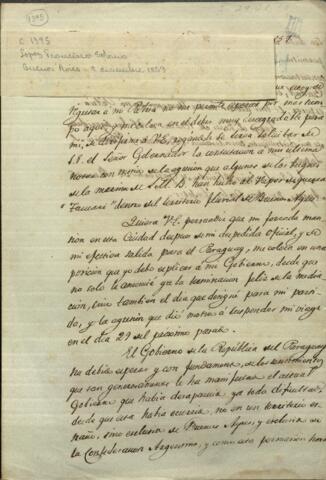 1395
C 1395
Lopez Francisco Solano
Buenos Aires - 8 diciembre 1859
regresar a mi Patria no me permite esperar por mas tiem
po aqui, y me coloca en el deber muy desagradable para
mi, de V.E. se sirva solicitar de
S.E. el Señor Gobernador la contestacion a mi ultima
nota con motivo de la agresion que algunos de los buques
de la marina de S.M.B. han hecho al Vapor de guerra
"Tacuari" dentro del territorio fluvial de Buenos Ayres.
Quiera V.E. permitir que mi forzada perma
nencia en esta Ciudad despues de mi despedida oficial, y de
mi efectiva salida para el Paraguay, me coloca en una
posicion que yo debo esplicar a mi Gobierno, desde que
no solo le anuncié ya la terminacion feliz de la media
cion, sino tambien el dia que designé para mi parti
da, y la agresion que dió motivo a suspender mi viage
en el dia 29 del proximo pasado.
El Gobierno de la Republica del Paraguay
ha debido esperar y con fundamento, de los sentimientos
que tan generosamente le ha manifestado el actual
Gobierno que habria desaparecido ya toda dificultad,
desde que esta habia ocurrido, no en un territorio es
traño, sino esclusivo de Buenos Ayres, y esclusivo de
la Confederacion Argentina, y como esta permanencia